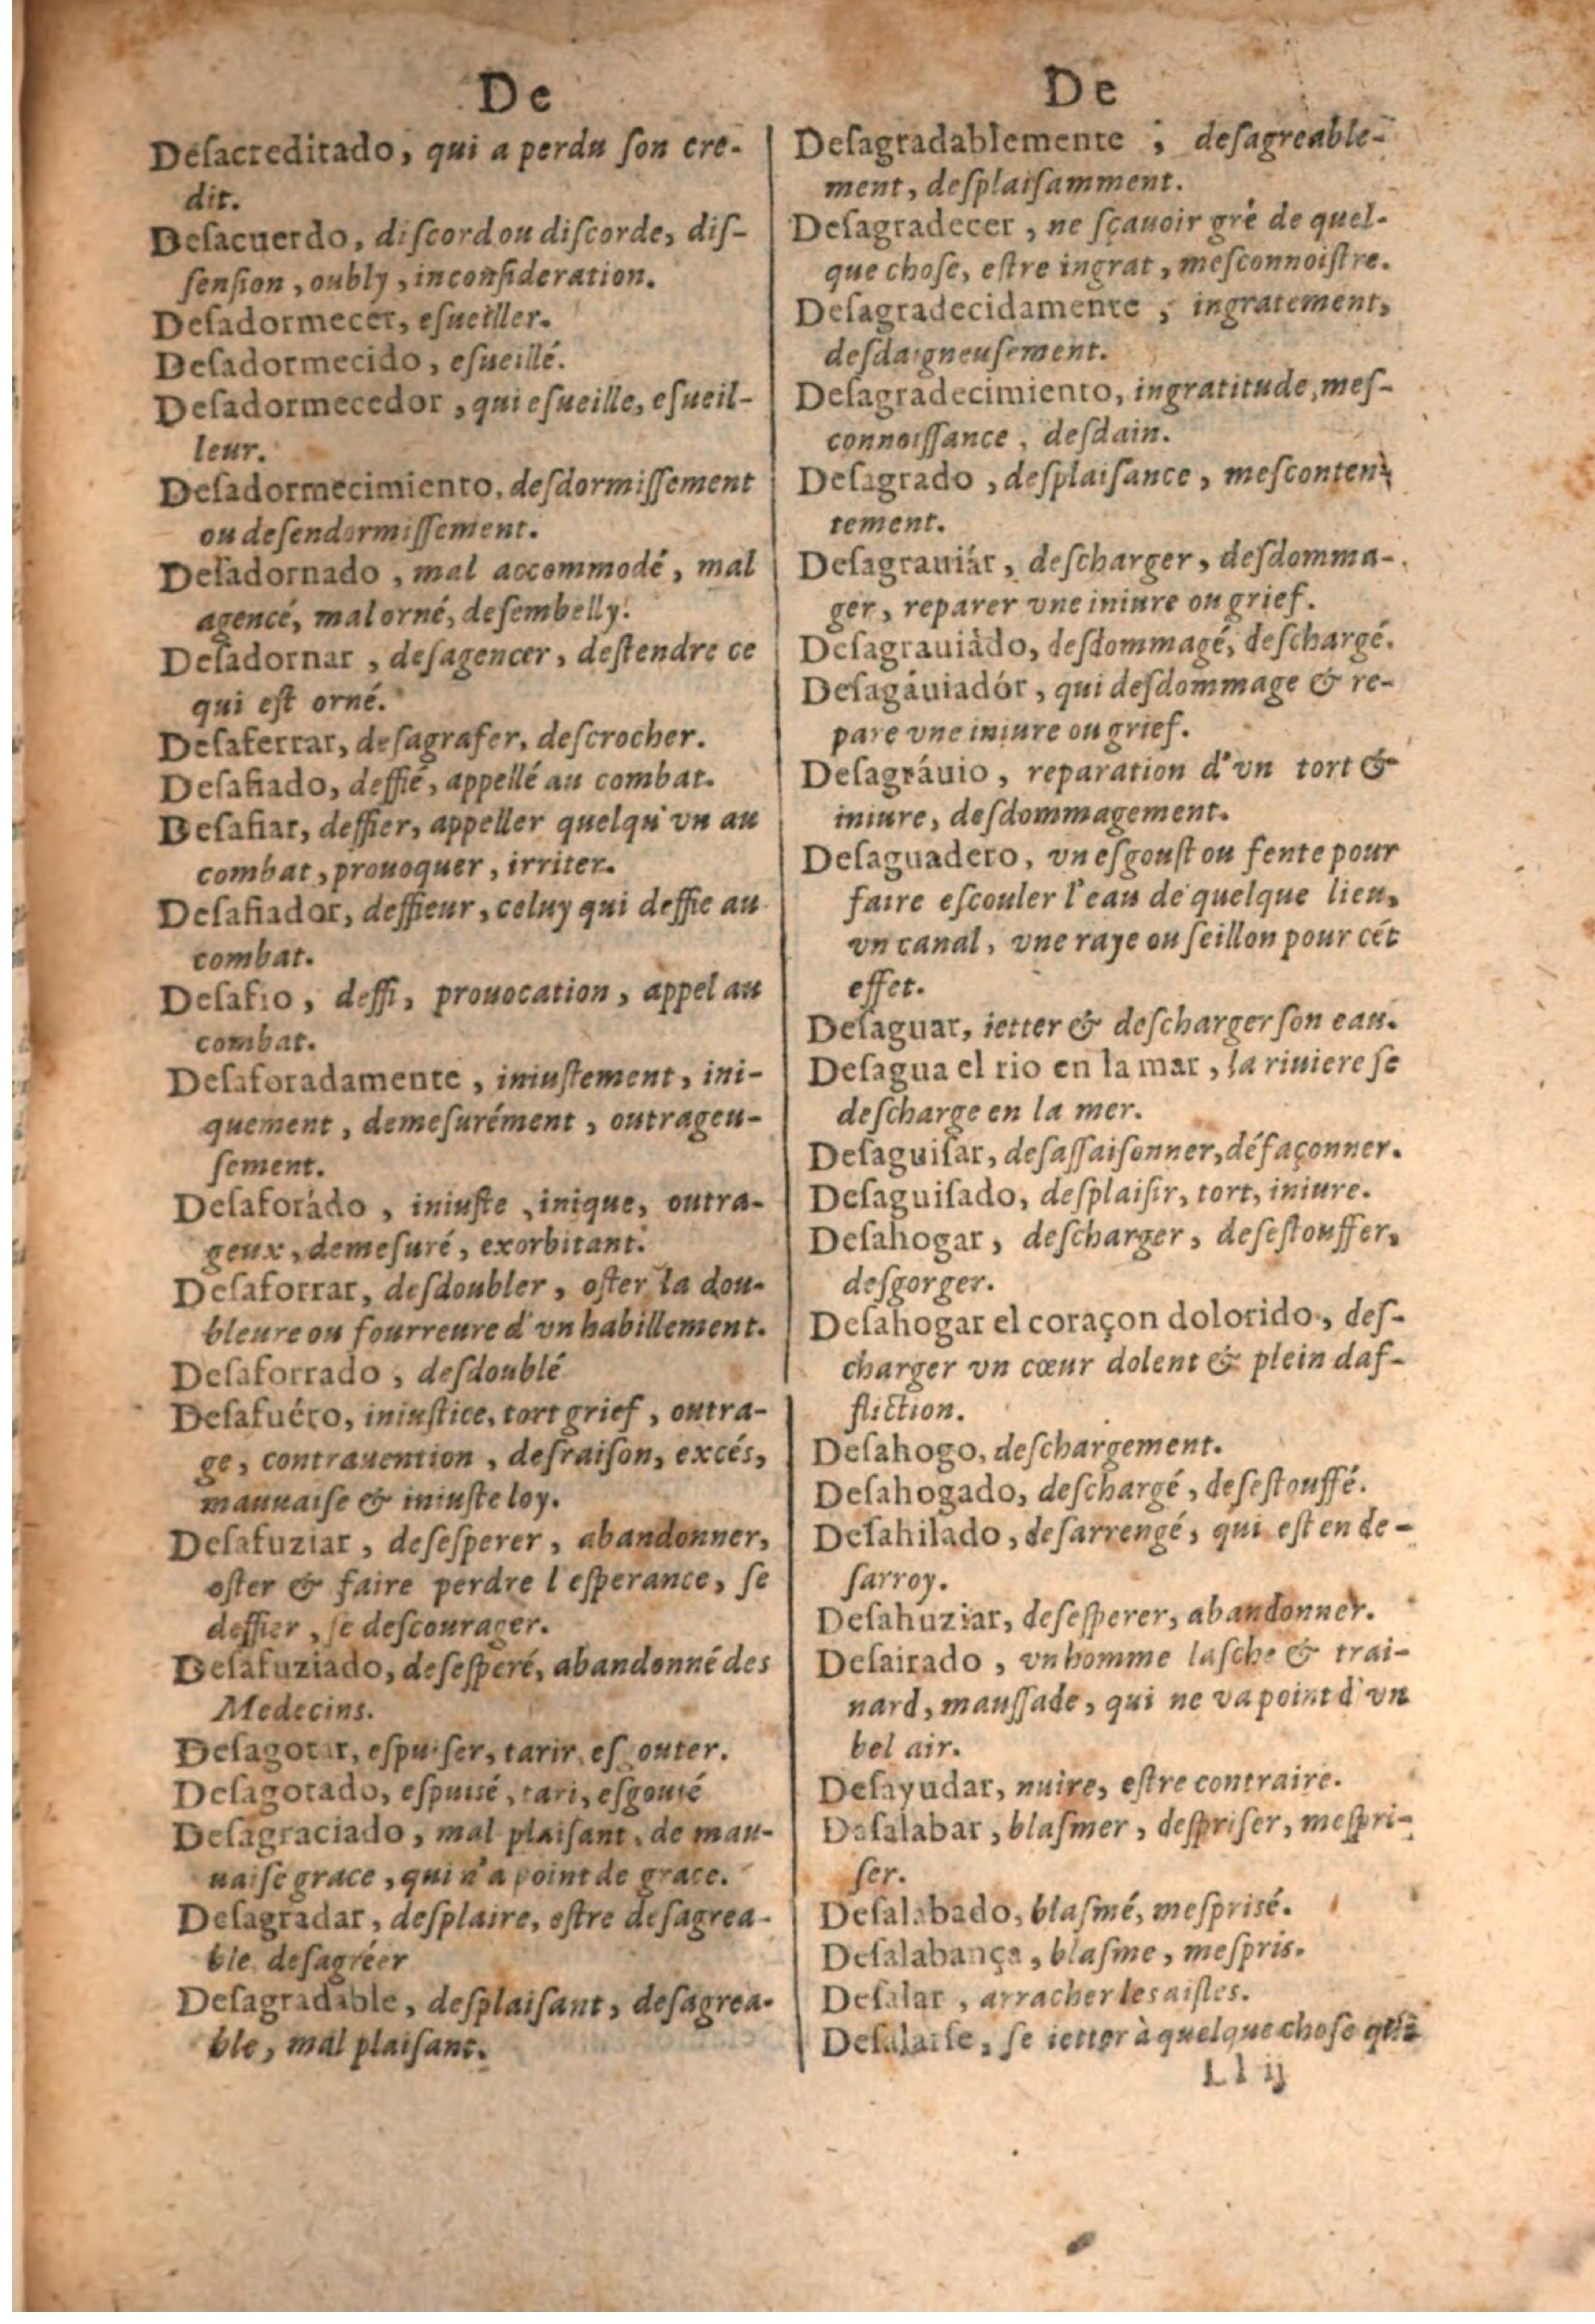 De
Desacreditado, qui a perdu ſon cre-
dit.
Deſacuerdo, diſcord ou diſcorde, diſ-
ſenſion, oubly, inconſideration.
Deſadormecer, eſueiller.
Deſadormecido, eſueillé.
Deſadormecedor, qui eſueille, eſueil-
leur.
Deſadormecimiento, deſdormiſſement
ou deſendormiſſement.
Deſadornado, mal accommodé, mal
agencé, mal orné, deſembelly.
Deſadornar, deſagencer, deſtendre ce
qui eſt orné.
Deſaferrar, deſagrafer, deſcrocher.
Deſafiado, deffié, appellé au combat.
Deſafiar, deffier, appeller quelqu'vn au
combat, prouoquer, irriter.
Deſafiador, deffieur, celuy qui deffie au
combat.
Deſafio, deffi, prouocation, appel au
combat.
Deſaforadamente, iniuſtement, ini-
quement, demeſurément, outrageu-
ſement.
Deſaforádo, iniuſte, inique, outra-
geux, demeſuré, exorbitant.
Deſaforrar, deſdoubler, oſter la dou-
bleure ou fourreure d'vn habillement.
Deſaforrado, deſdoublé
Deſafuéro, iniuſtice, tort grief, outra-
ge, contrauention, deſraiſon, excés,
mauuaiſe & iniuſte loy.
Deſafuziar, deſeſperer, abandonner,
oſter & faire perdre l'eſperance, ſe
deffier, ſe deſcourager.
Deſafuziado, deſeſperé, abandonné des
Medecins.
Deſagotar, eſpuiſer, tarir, eſgouter.
Deſagotado, eſpuisé, tari, eſgouté
Deſagraciado, mal plaiſant, de mau-
uaiſe grace, qui n'a point de grace.
Deſagradar, deſplaire, eſtre deſagrea-
ble, deſagréer
Deſagradable, deſplaiſant, deſagrea-
ble, mal plaiſant.
De
Deſagradablemente, deſagreable-
ment, deſplaiſamment.
Deſagradecer, ne ſçauoir gré de quel-
que choſe, eſtre ingrat, meſconnoiſtre.
Deſagradecidamente, ingratement,
desdaigneuſement.
Deſagradecimiento, ingratitude, meſ-
connoiſſance, desdain.
Deſagrado, deſplaiſance, meſconten-
tement.
Deſagrauiár, deſcharger, deſdomma-
ger, reparer vne iniure ou grief.
Deſagrauiàdo, deſdommagé, deſchargé.
Deſagáuiadór, qui deſdommage & re-
pare vne iniure ou grief.
Deſagráuio, reparation d'vn tort &
iniure, deſdommagement.
Deſaguadero, vn eſgouſt ou fente pour
faire eſcouler l'eau de quelque lieu,
vn canal, vne raye ou ſeillon pour cét
effet.
Deſaguar, ietter & deſcharger ſon eau.
Deſagua el rio en la mar, la riuiere ſe
deſcharge en la mer.
Deſaguiſar, deſaſſaiſonner, défaçonner.
Deſaguiſado, deſplaiſir, tort, iniure.
Deſahogar, deſcharger, deſeſtouffer,
deſgorger.
Deſahogar el coraçon dolorido, deſ-
charger vn cœur dolent & plein daf-
fliction.
Deſahogo, deſchargement.
Deſahogado, deſchargé, deſeſtouffé.
Deſahilado, deſarrengé, qui eſt en de-
ſarroy.
Deſahuziar, deſeſperer, abandonner.
Deſairado, vn homme laſche & trai-
nard, mauſſade, qui ne va point d'vn
bel air.
Deſayudar, nuire, eſtre contraire.
Deſalabar, blaſmer, deſpriſer, meſpri-
ſer.
Deſalabado, blaſmé, meſprisé.
Deſalabança, blaſme, meſpris.
Deſalar, arracher les aiſles.
Deſalarſe, ſe ietter à quelque choſe qui
Ll ij